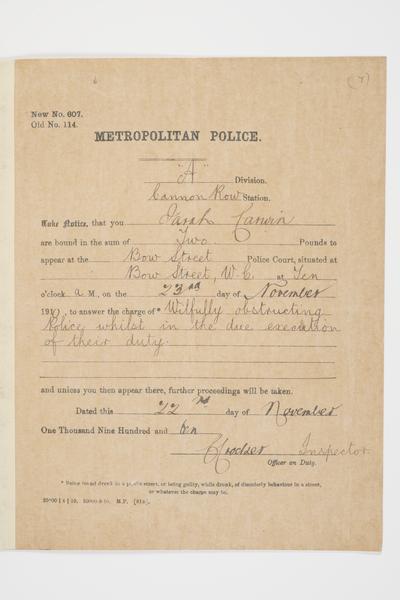 (7)
New No. 607.
Old No. 114.
METROPOLITAN POLICE.
"A" Division.
Cannon Row Station.
Take Notice, that you Sarah Carwin
are bound in the sum of Two Pounds to
appear at the Bow Street Police Court, situated at
Bow Street, W.C. at Ten
o'clock a M., on the 23rd day of November
1910, to answer the charge of* Wilfully obstructing
Police whilst in the due execution
of their duty.
and unless you then appear there, further proceedings will be taken.
Dated this 22nd day of November
One Thousand Nine Hundred and ten
Inspector
Officer on Duty.
* Being found drunk in a public street, or being guilty, while drunk, of disorderly behaviour in a street,
or whatever the charge may be.
M.P.